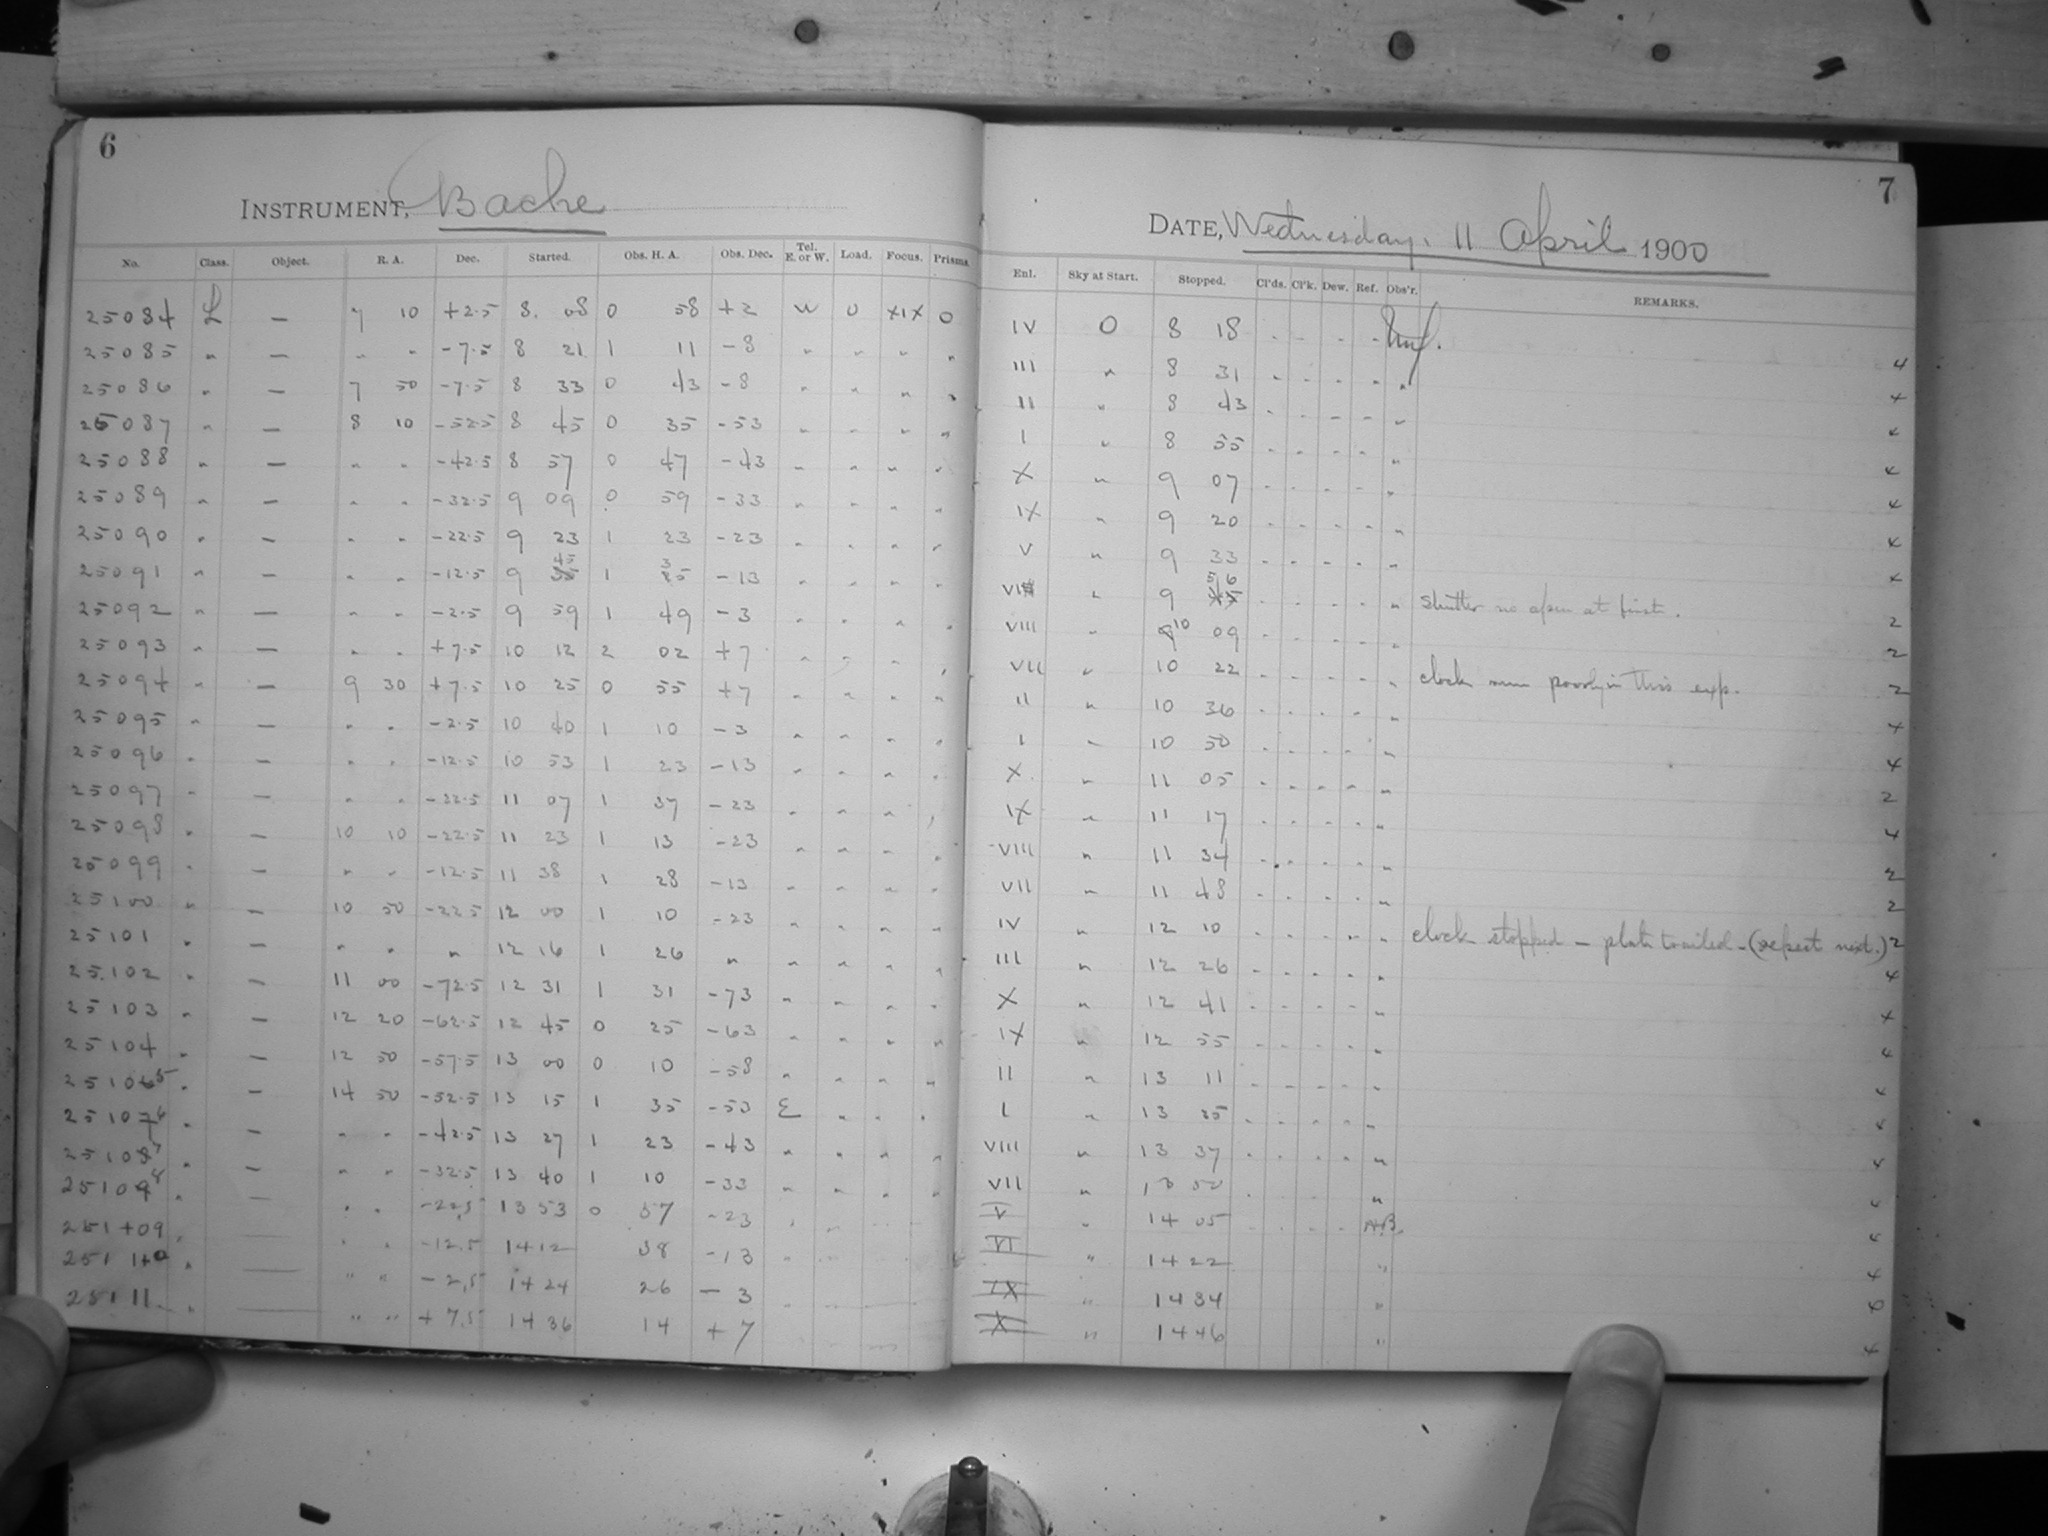 6
INSTRUMENT, Bache
No. Class. Object. R. A. Dec. Started. Obs. H. A. Obs. Dec. Tel. E. or W. Load. Focus. Prisms.
25084 L — 7 10 +2.5 8. 08 0 58 +2 W 0 XIX 0
25085 " — " " -7.5 8 21 1 11 -8 " " " "
25086 " — 7 50 -7.5 8 33 0 43 -8 " " " "
25087 " — 8 10 -52.5 8 45 0 35 -53 " " " "
25088 " — " " -42.5 8 57 0 47 -43 " " " "
25089 " — " " -32.5 9 09 0 59 -33 " " " "
25090 " — " " -22.5 9 23 1 23 -23 " " " "
25091 " — " " -12.5 9 45 1 35 -13 " " " "
25092 " — " " -2.5 9 59 1 49 -3 " " " "
25093 " — " " +7.5 10 12 2 02 +7 " " " "
25094 " — 9 30 +7.5 10 25 0 55 +7 " " " "
25095 " — " " -2.5 10 40 1 10 -3 " " " "
25096 " — " " -12.5 10 53 1 23 -13 " " " "
25097 " — " " -22.5 11 07 1 37 -23 " " " "
25098 " — 10 10 -22.5 11 23 1 13 -23 " " " "
25099 " — " " -12.5 11 38 1 28 -13 " " " "
25100 " — 10 50 -22.5 12 00 1 10 -23 " " " "
25101 " — " " " 12 16 1 26 " " " " "
25102 " — 11 00 -72.5 12 31 1 31 -73 " " " "
25103 " — 12 20 -62.5 12 45 0 25 -63 " " " "
25104 " — 12 50 -57.5 13 00 0 10 -58 " " " "
25105 " — 14 50 -52.5 13 15 1 35 -53 E " " "
25106 " — " " -42.5 13 27 1 23 -43 " " " "
25107 " — " " -32.5 13 40 1 10 -33 " " " "
25108 " — " " -22.5 13 53 0 57 -23 " "
25109 " — " " -12.5 14 12 38 -13 "
25110 " — " " -2.5 14 24 26 -3 "
25111 " — " " +7.5 14 36 14 +7
7
DATE, Wednesday, 11 April 1900
Enl. Sky at Start. Stopped. Cl'ds. Cl'k. Dew. Ref. Obs'r. REMARKS.
IV 0 8 18 - - - - 4
III " 8 31 - - - - "
II " 8 43 - - - - "
I " 8 55 - - - - "
X " 9 07 - - - - "
IX " 9 20 - - - - "
V " 9 33 - - - - "
VI " 9 56 - - - - " Shutter no open at first. 2
VIII " 10 09 - - - - " 2
VII " 10 22 - - - - " clock run poorly in this exp. 2
II " 10 36 - - - - " 4
I " 10 50 - - - - " 4
X " 11 05 - - - - " 2
IX " 11 17 - - - - " 4
VIII " 11 34 - - - - " 2
VII " 11 48 - - - - " 2
IV " 12 10 - - - - " clock stopped — plate trailed — (repeat next.) 2
III " 12 26 - - - - " 4
X " 12 41 - - - - "
IX " 12 55 - - - - "
II " 13 11 - - - - "
I " 13 25 - - - - "
VIII " 13 37 - - - - "
VII " 13 50 "
V " 14 05 - - - - A.B.
VI " 14 22 "
IX " 14 34 "
X " 14 46 "